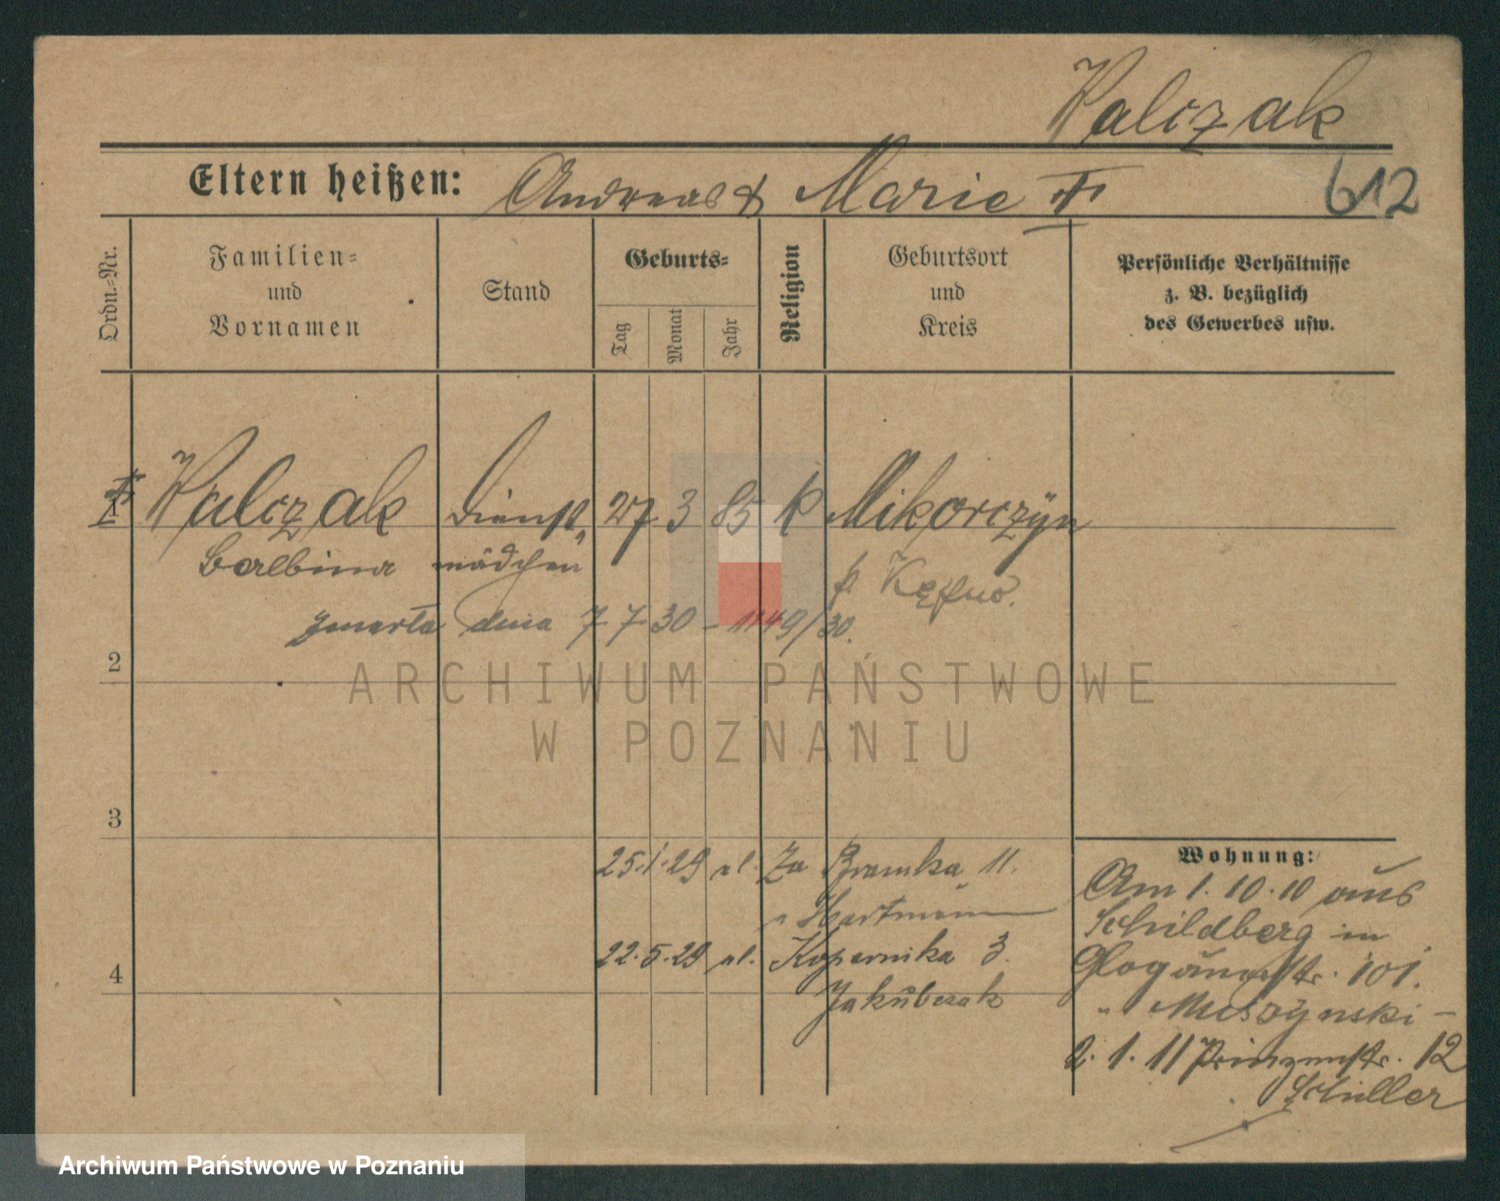 Walczak
Eltern heißen: Andreas & Marie
612
Ordn.-Nr.
Familien-
und
Vornamen
Stand
Geburts-
Tag
Monat
Jahr
Religion
Geburtsort
und
Kreis
Persönliche Verhältnisse
z. B. bezüglich
des Gewerbes usw.
1 Walczak Dienst- 27 3 85 k Mikorczyn
Balbina mädchen p. Kępno.
zmarła dnia 7 7 30 - 1149/30.
2
ARCHIWUM PAŃSTWOWE
W POZNANIU
3
25.1.29 ul. Za Bramka 11.
" Hartmann
22.5.29 ul. Kopernika 3.
Jakubczak
4
Wohnung:
Am 1.10.10 aus
Schildberg in
Glogauerstr. 101.
" Muszynski -
2.1.11 Prinzenstr. 12
Schiller
Archiwum Państwowe w Poznaniu